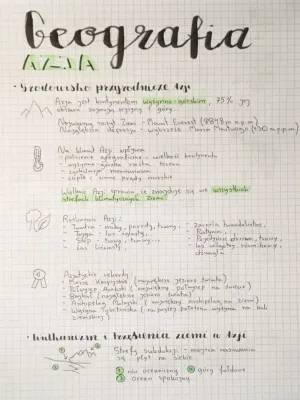 Geografia
AZJA
• Środowisko przyrodnicze Azji
Azja jest kontynentem wyżynno-górskim, 75% jej
obszaru zajmują wyżyny i góry.
Najwyższy szczyt Ziemi - Mount Everest (8848 m n.p.m.)
Największa depresja - wybrzeże Morza Martwego
Na klimat Azji wpływa
- położenie geograficzne - wielkość kontynentu
- wyżynno-górska rzeźba terenu
- cyrkulacja monsunowa
- ciepłe i zimne prądy morskie
Wielkość Azji sprawia, że znajduje się we wszystkich
strefach klimatycznych Ziemi
Roślinność Azji:
- Tundra - mchy, porosty, trawy...
- Tajga - las iglasty
- Step - trawy, trawy...
- Las liściasty
- Pustynia
Azjatyckie rekordy
- Morze Kaspijskie (największe jezioro świata)
- Półwysep Arabski (największy półwysep na świecie)
- Bajkał (najgłębsze jezioro świata)
- Archipelag Malajski (największy archipelag na ziemi)
- Wyżyna Tybetańska (najwyżej położona wyżyna na kuli
ziemskiej)
• Wulkanizm i trzęsienia ziemi w Azji
Strefy subdukcji - miejsca nasuwania
się płyt na siebie
① rów oceaniczny ③ góry fałdowe
② ocean spokojny